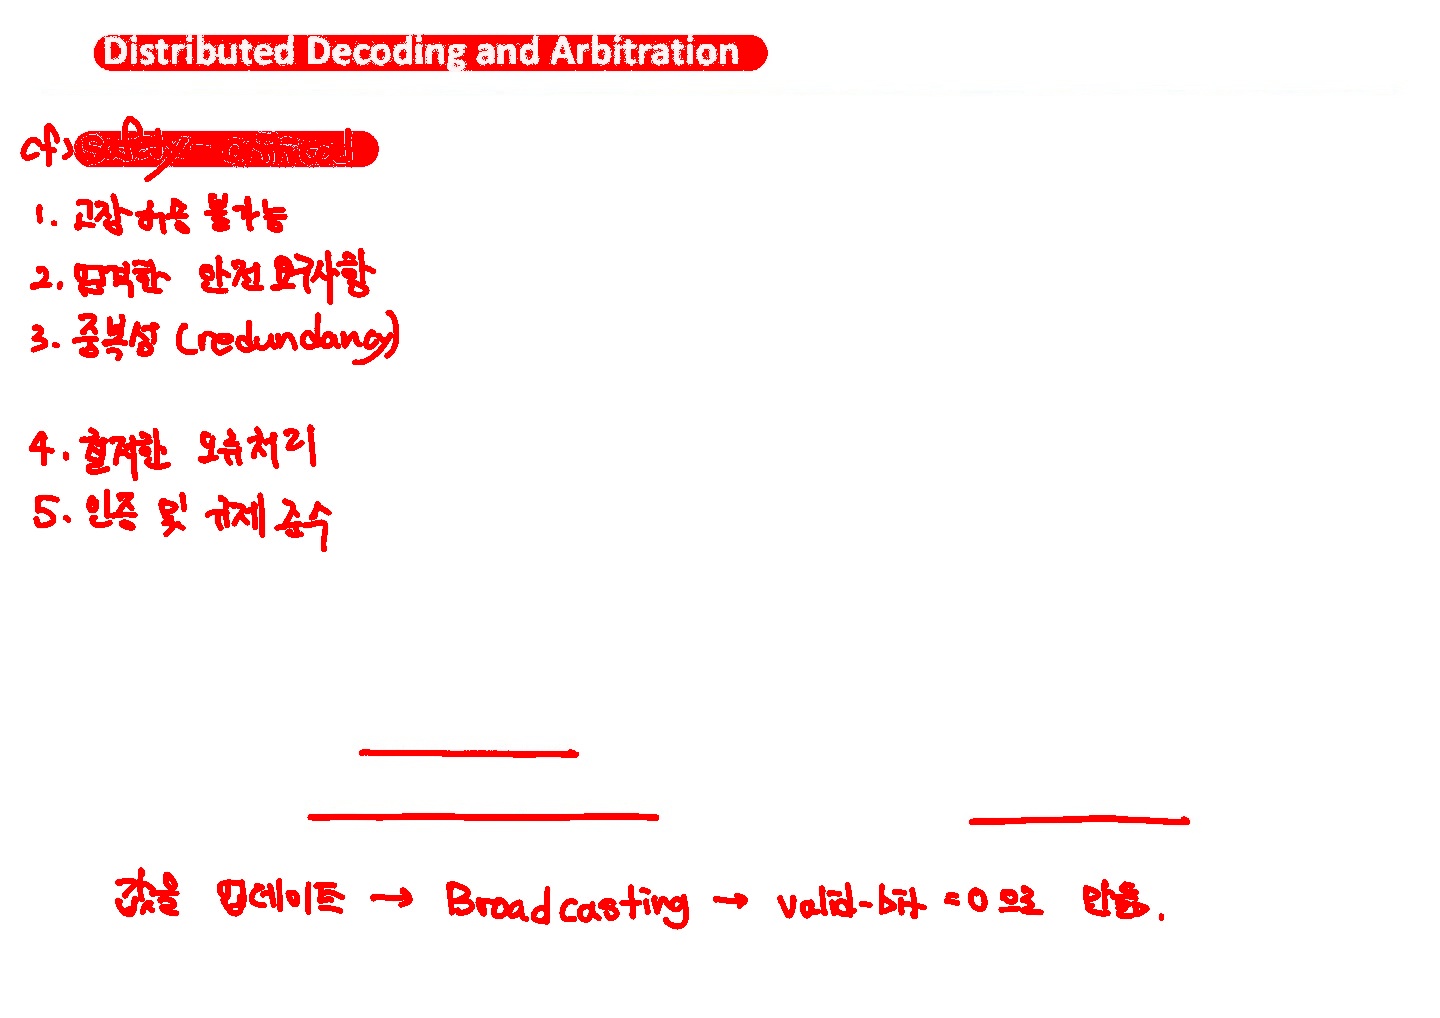 Distributed Decoding and Arbitration
cf) safety-critical
1. 고장 허용 불가능
2. 엄격한 안전 요구사항
3. 중복성 (redundancy)
4. 철저한 오류처리
5. 인증 및 규제 준수
값을 업데이트 → Broadcasting → valid-bit = 0 으로 만듦.